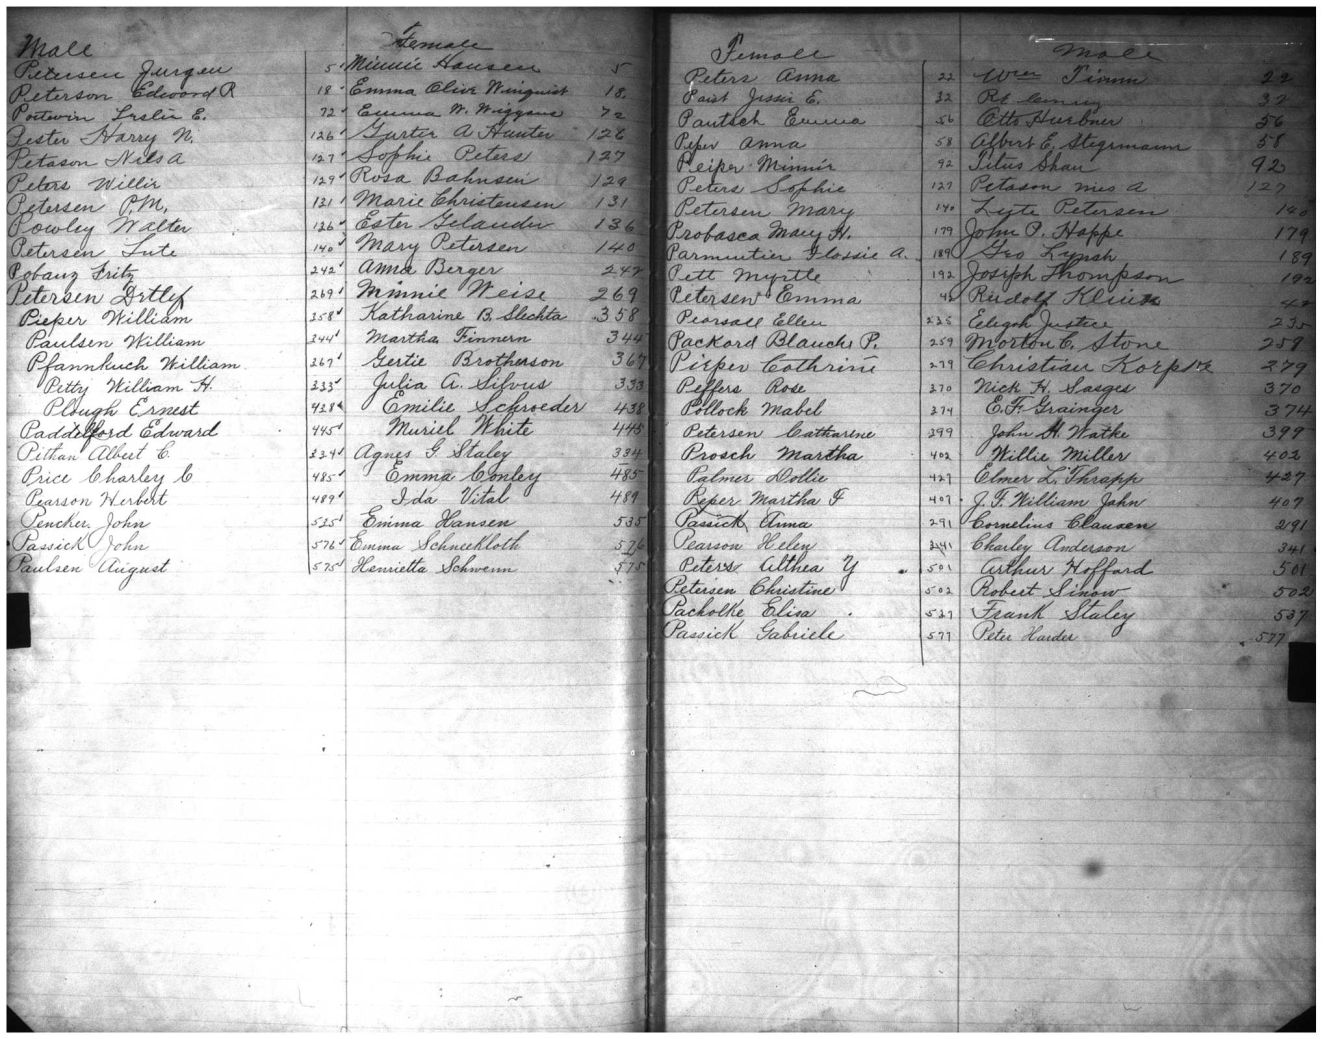 Male Female
Petersen Jurgen 5 Minnie Hansen 5
Peterson Edward R 18 Emma Olive Winquist 18
Postwin Leslie E. 72 Emma W. Wiggans 72
Pester Harry N. 126 Gurter A Hunter 126
Petason Nils A 127 Sophie Peters 127
Peters Willie 129 Rosa Bahnsen 129
Petersen P.M. 131 Marie Christensen 131
Powley Walter 136 Ester Gelander 136
Petersen Lute 140 Mary Petersen 140
Pobanz Fritz 242 Anna Berger 242
Petersen Detlef 269 Minnie Weise 269
Pieper William 358 Katharine B. Slechta 358
Paulsen William 344 Martha Finnern 344
Pfannkuch William 367 Gertie Brotherson 367
Petty William H. 333 Julia A. Silvus 333
Plough Ernest 438 Emilie Schroeder 438
Paddelford Edward 445 Muriel White 445
Pithan Albert C. 334 Agnes G Staley 334
Price Charley C 485 Emma Conley 485
Pearson Herbert 489 Ida Vital 489
Pencker John 535 Emma Hansen 535
Passick John 576 Emma Schneekloth 576
Paulsen August 575 Henrietta Schwenn 575
Female Male
Peters Anna 22 Wm Timm 22
Paist Jessie E. 32 32
Pautsch Emma 56 Otto Huebner 56
Peper Anna 58 Albert E. Stegemann 58
Peiper Minnie 92 Titus Shau 92
Peters Sophie 127 Petason nies A 127
Petersen Mary 140 Lute Petersen 140
Probasca Mary H. 179 John P. Hoppe 179
Parmentier Flossie A. 189 Geo Lynsh 189
Pett Myrtle 192 Joseph Thompson 192
Petersen Emma 42 Rudolf Klein 42
Pearsall Ellen 235 Eligah Justice 235
Packord Blauche P. 259 Morton C. Stone 259
Pieper Cathrine 279 Christian Korpke 279
Peffers Rose 370 Nick H. Sasges 370
Pollock Mabel 374 E.F. Grainger 374
Petersen Catharine 399 John H. Watke 399
Prosch Martha 402 Willie Miller 402
Palmer Dollie 427 Elmer L. Thrapp 427
Peper Martha F 407 J. F. William Jahn 407
Passick Anna 291 Cornelius Clausen 291
Pearson Helen 341 Charley Anderson 341
Peters Althea Y 501 Arthur Hofford 501
Petersen Christine 502 Robert Sinow 502
Pacholke Elisa 537 Frank Staley 537
Passick Gabriele 577 Peter Harder 577